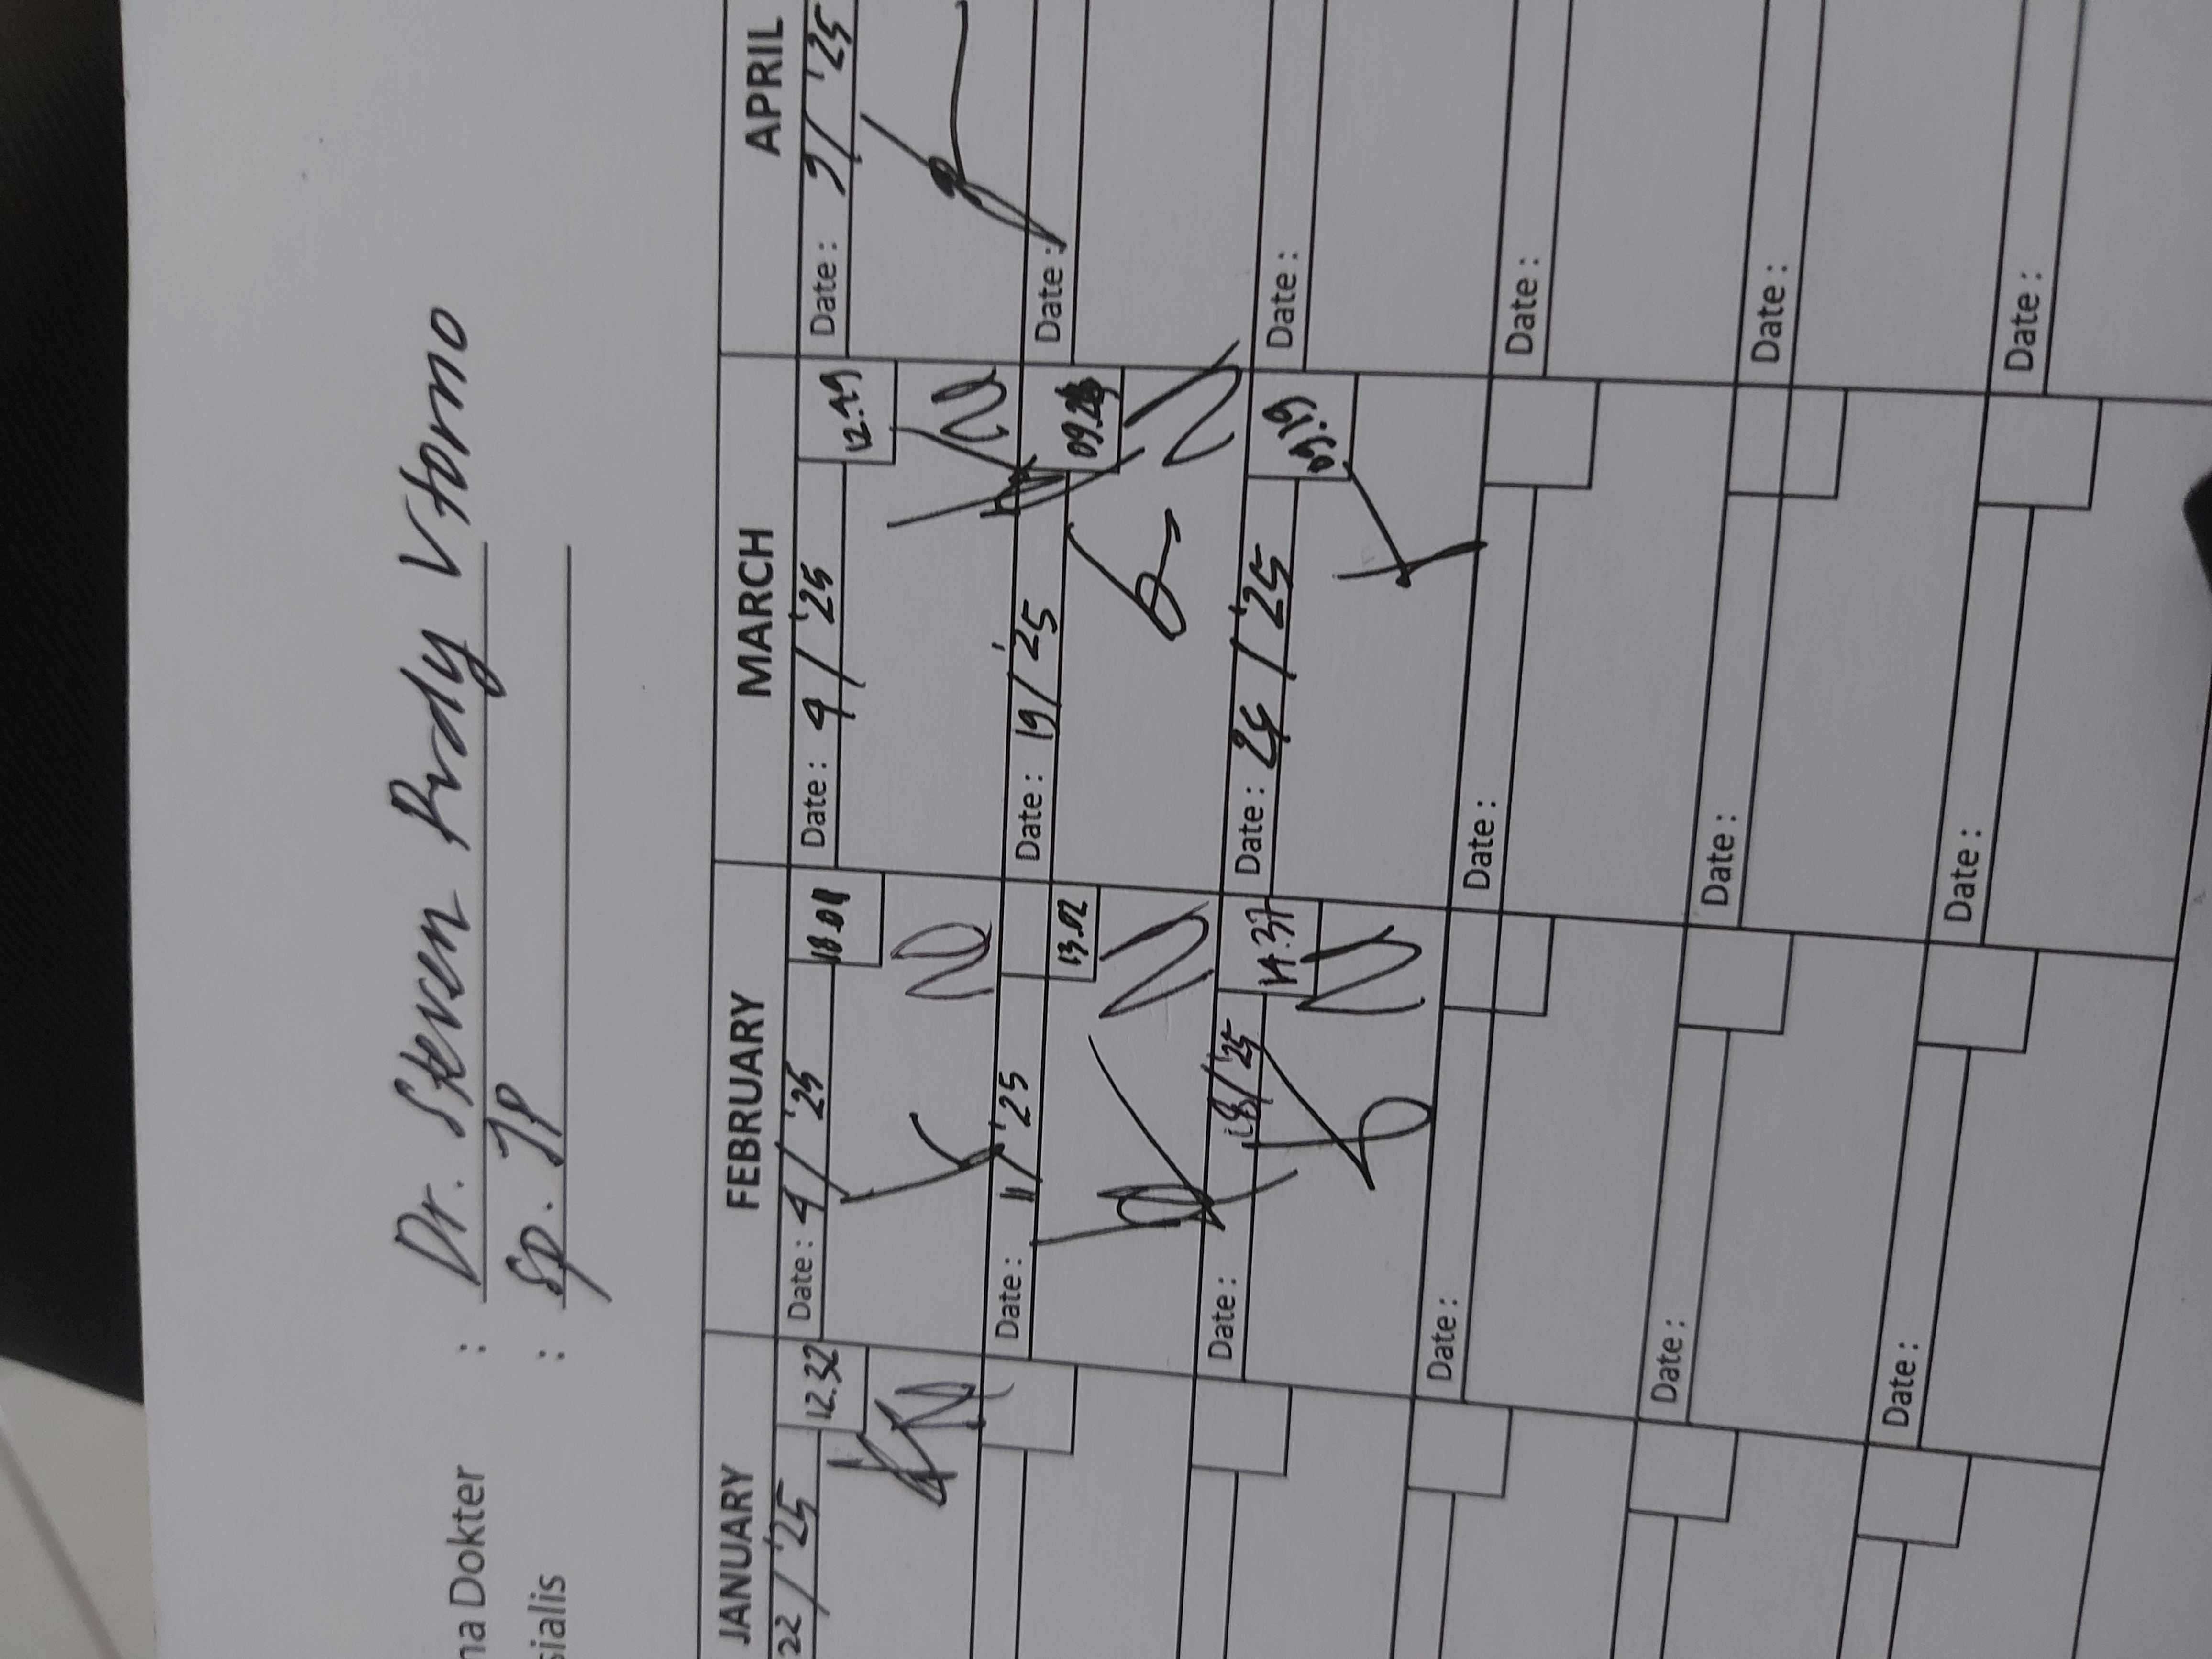 na Dokter : Dr. Steven Rudy Utomo
sialis : Sp. JP
JANUARY FEBRUARY MARCH APRIL
22 / '25 12.32 Date : 4 / '25 18.04 Date : 4 / '25 12.49 Date : 9 / '25
Date : 11 / '25 13.02 Date : 19 / '25 09.28 Date :
Date : 18 / '25 14.37 Date : 24 / '25 09.19 Date :
Date : Date : Date :
Date : Date : Date :
Date : Date : Date :